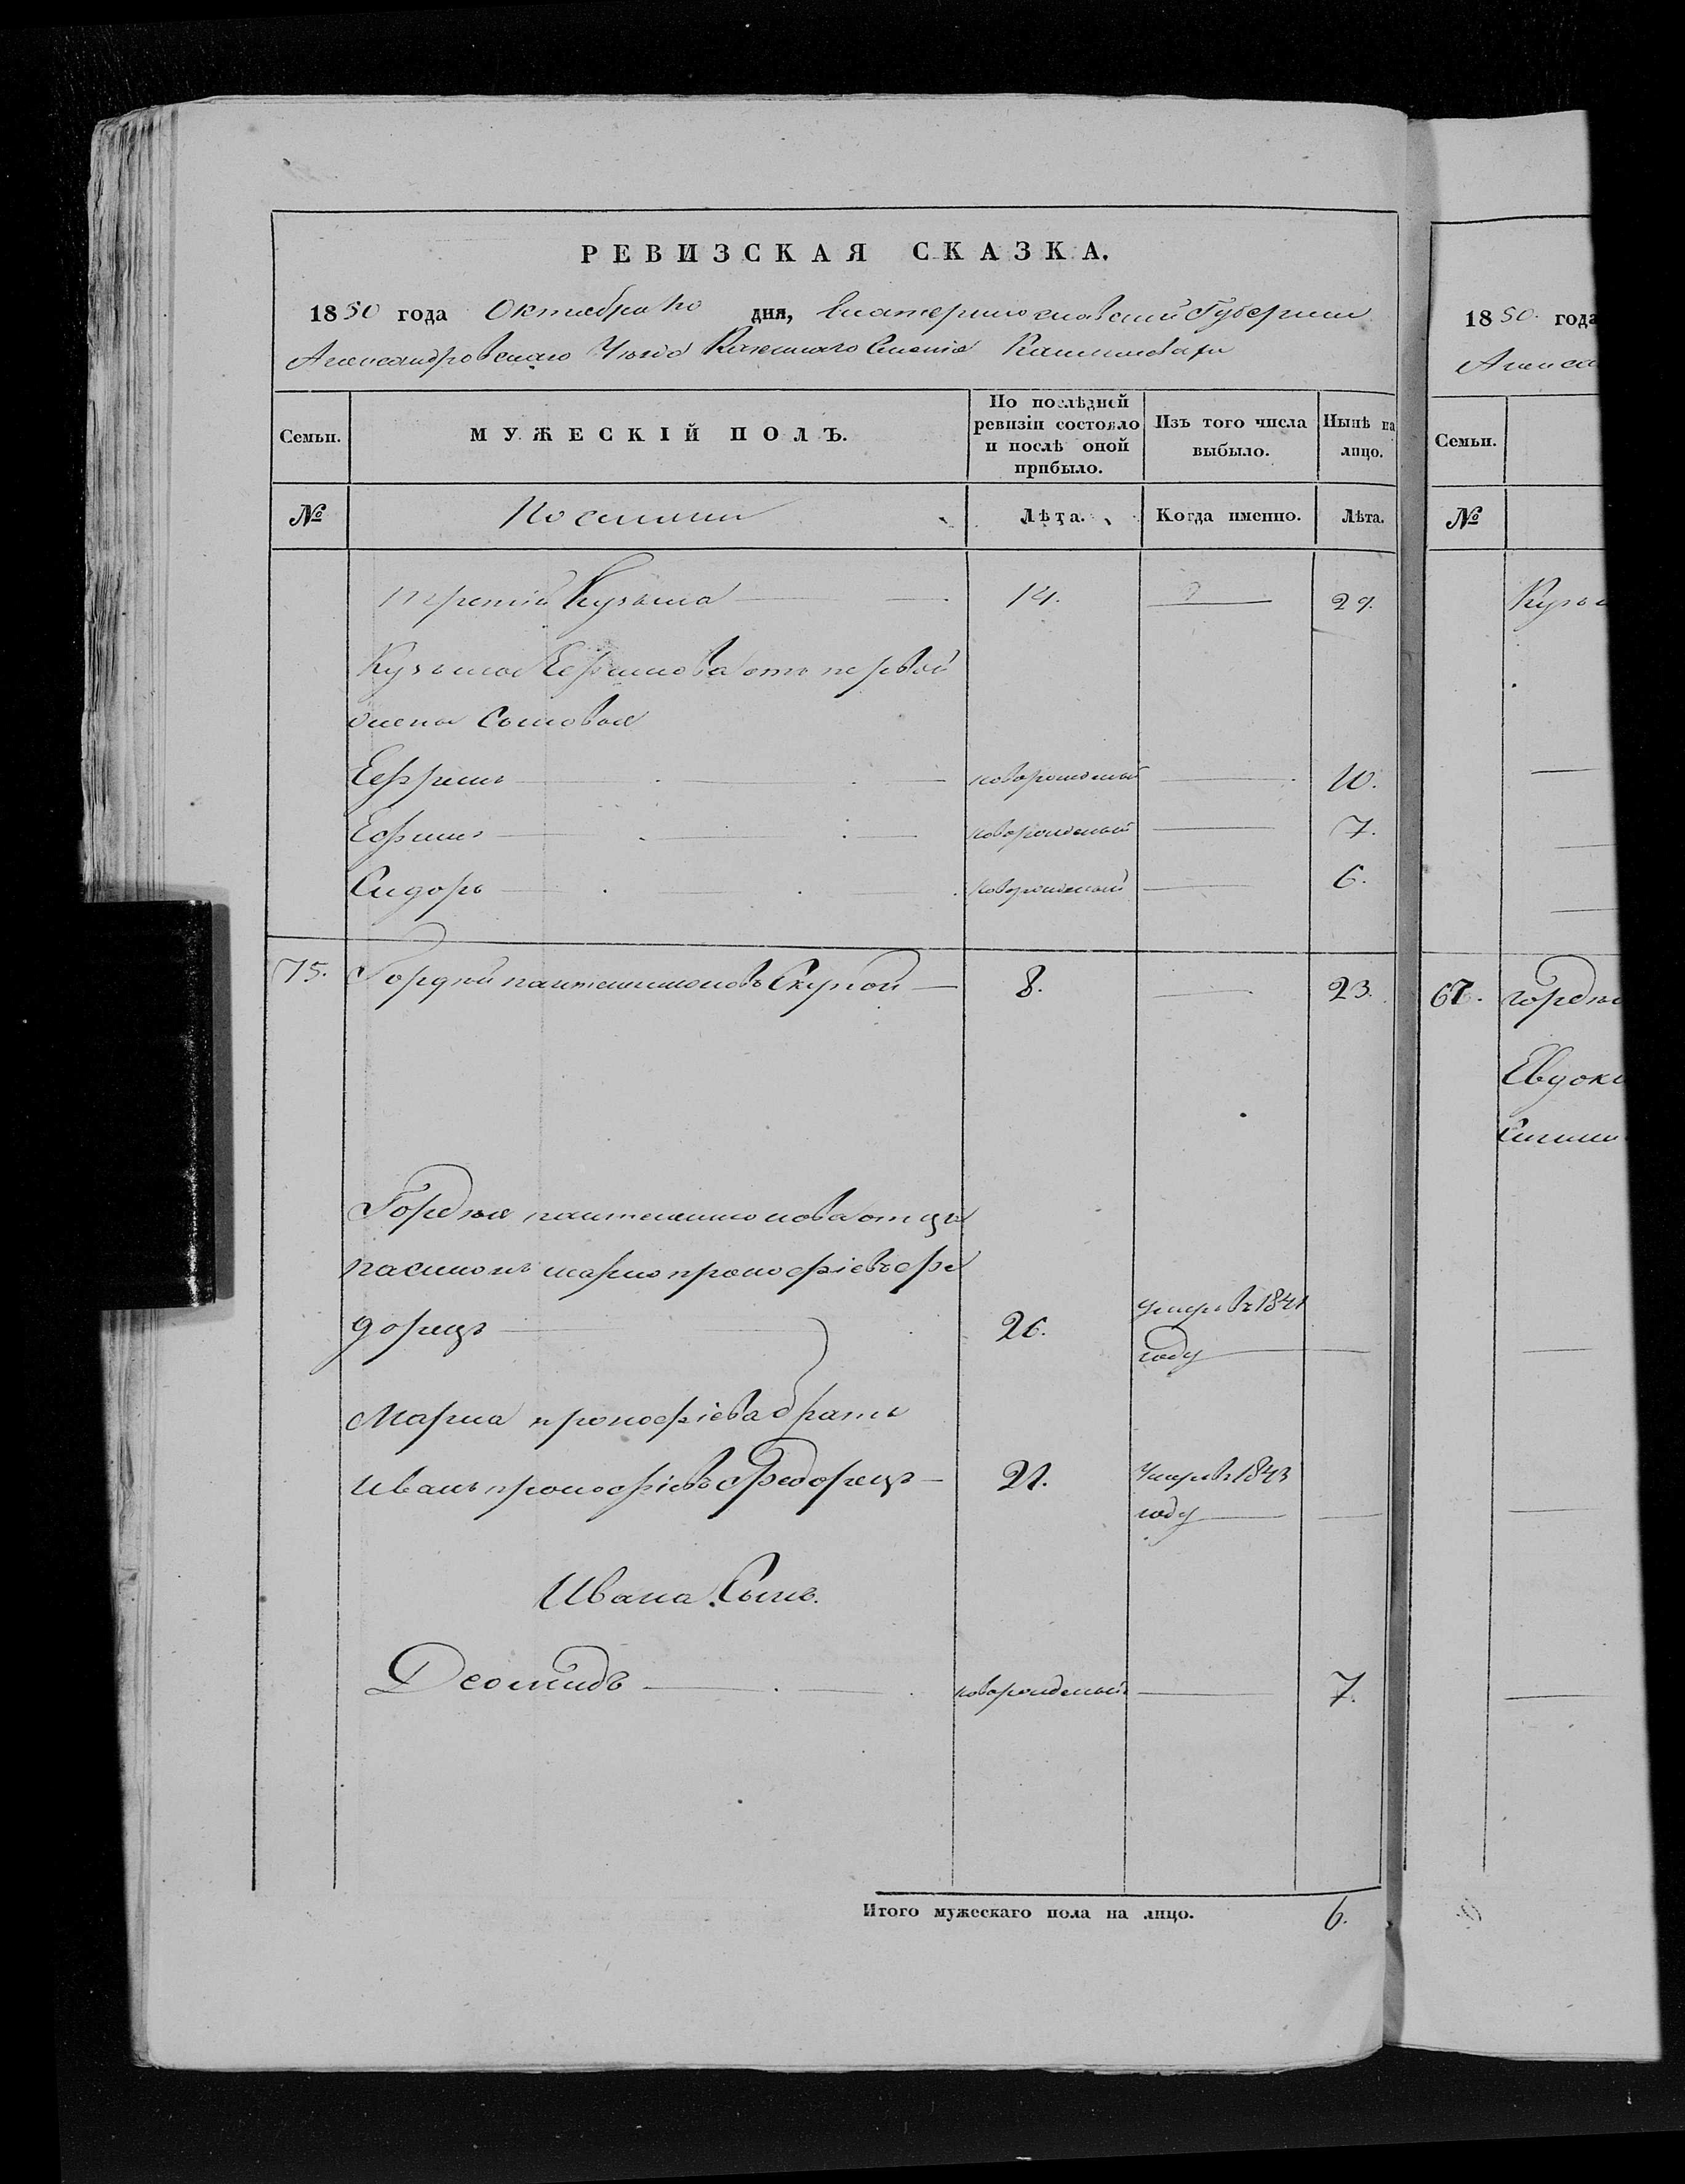 РЕВИЗСКАЯ СКАЗКА.
1850 года Октября дня, Екатеринославской Губернии
Александровского Уезда Казенного Селения
Семьи.
МУЖЕСКІЙ ПОЛЪ.
По послѣдней ревизіи состояло и послѣ оной прибыло.
Изъ того числа выбыло.
Нынѣ на лицо.
№
Лѣта.
Когда именно.
Лѣта.
третий Кузьма 14. 29.
Кузьмы Ефимова отъ первой
жены Сыновья
Ефремъ новорожденый 10.
Ефимъ новорожденый 7.
Сидоръ новорожденый 6.
75. Гордей пантелимоновъ Скупой 8. 23.
Гордея пантелимонова отца
пасинокъ марко прокофіевъ фе
дорецъ 26. Умеръ въ 1841
году
Марка прокофіева братъ
иванъ прокофіевъ федорецъ 21. Умеръ въ 1843
году
Ивана Сынъ.
Деомидъ новорожденый 7.
Итого мужескаго пола на лицо. 6.
1850. года
Семьи.
№
67.